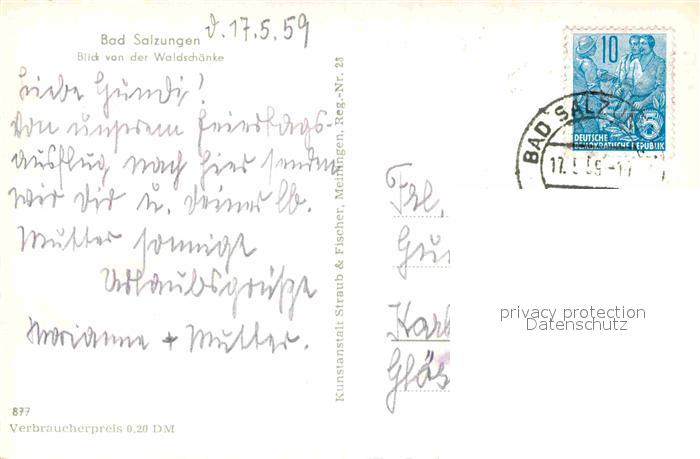 d. 17.5.59
Bad Salzungen
Blick von der Waldschänke
Liebe Gundi!
Von unserem Feiertags-
ausflug nach hier senden
wir Dir u. deiner lb.
Mutter sonnige
Urlaubsgrüße
Marianne + Mutter.
877
Verbraucherpreis 0,20 DM
Kunstanstalt Straub & Fischer, Meiningen, Reg.-Nr. 23
10
DEUTSCHE
DEMOKRATISCHE REPUBLIK
BAD SALZUN
17.5.59-17
Frl.
Gun
Karl
Gläs
privacy protection
Datenschutz